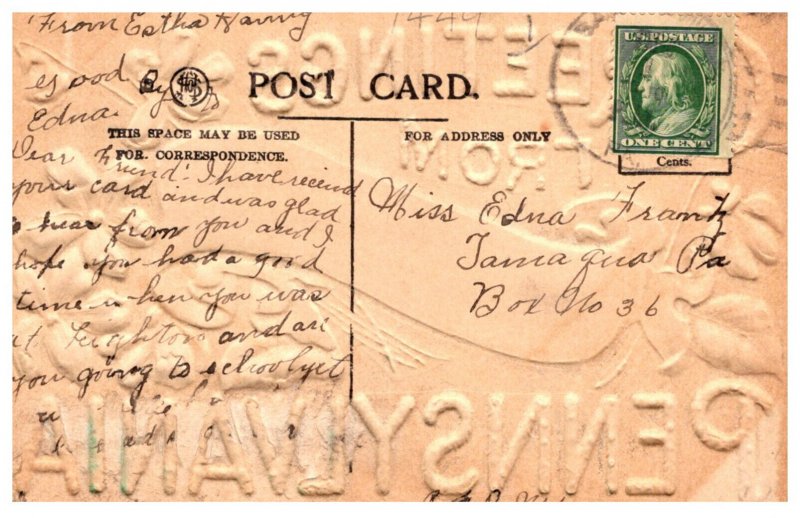 From Estha
1449
good By
Edna.
POST CARD.
THIS SPACE MAY BE USED
FOR CORRESPONDENCE.
FOR ADDRESS ONLY
U.S. POSTAGE
ONE CENT
Cents.
Dear Friend! I have receivd
your card and was glad
to hear from you and I
hope you had a good
time when you was
at Leighton and are
you going to school yet
Miss Edna Frantz
Tamaqua Pa
Box No 36
GREETINGS
FROM
PENNSYLVANIA